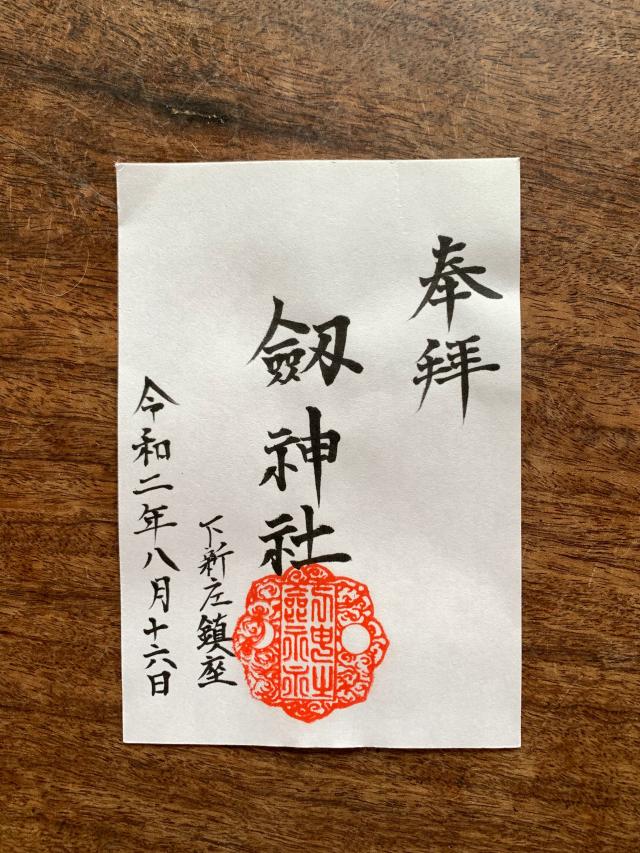 奉拝
劔神社
下新庄鎮座
令和二年八月十六日